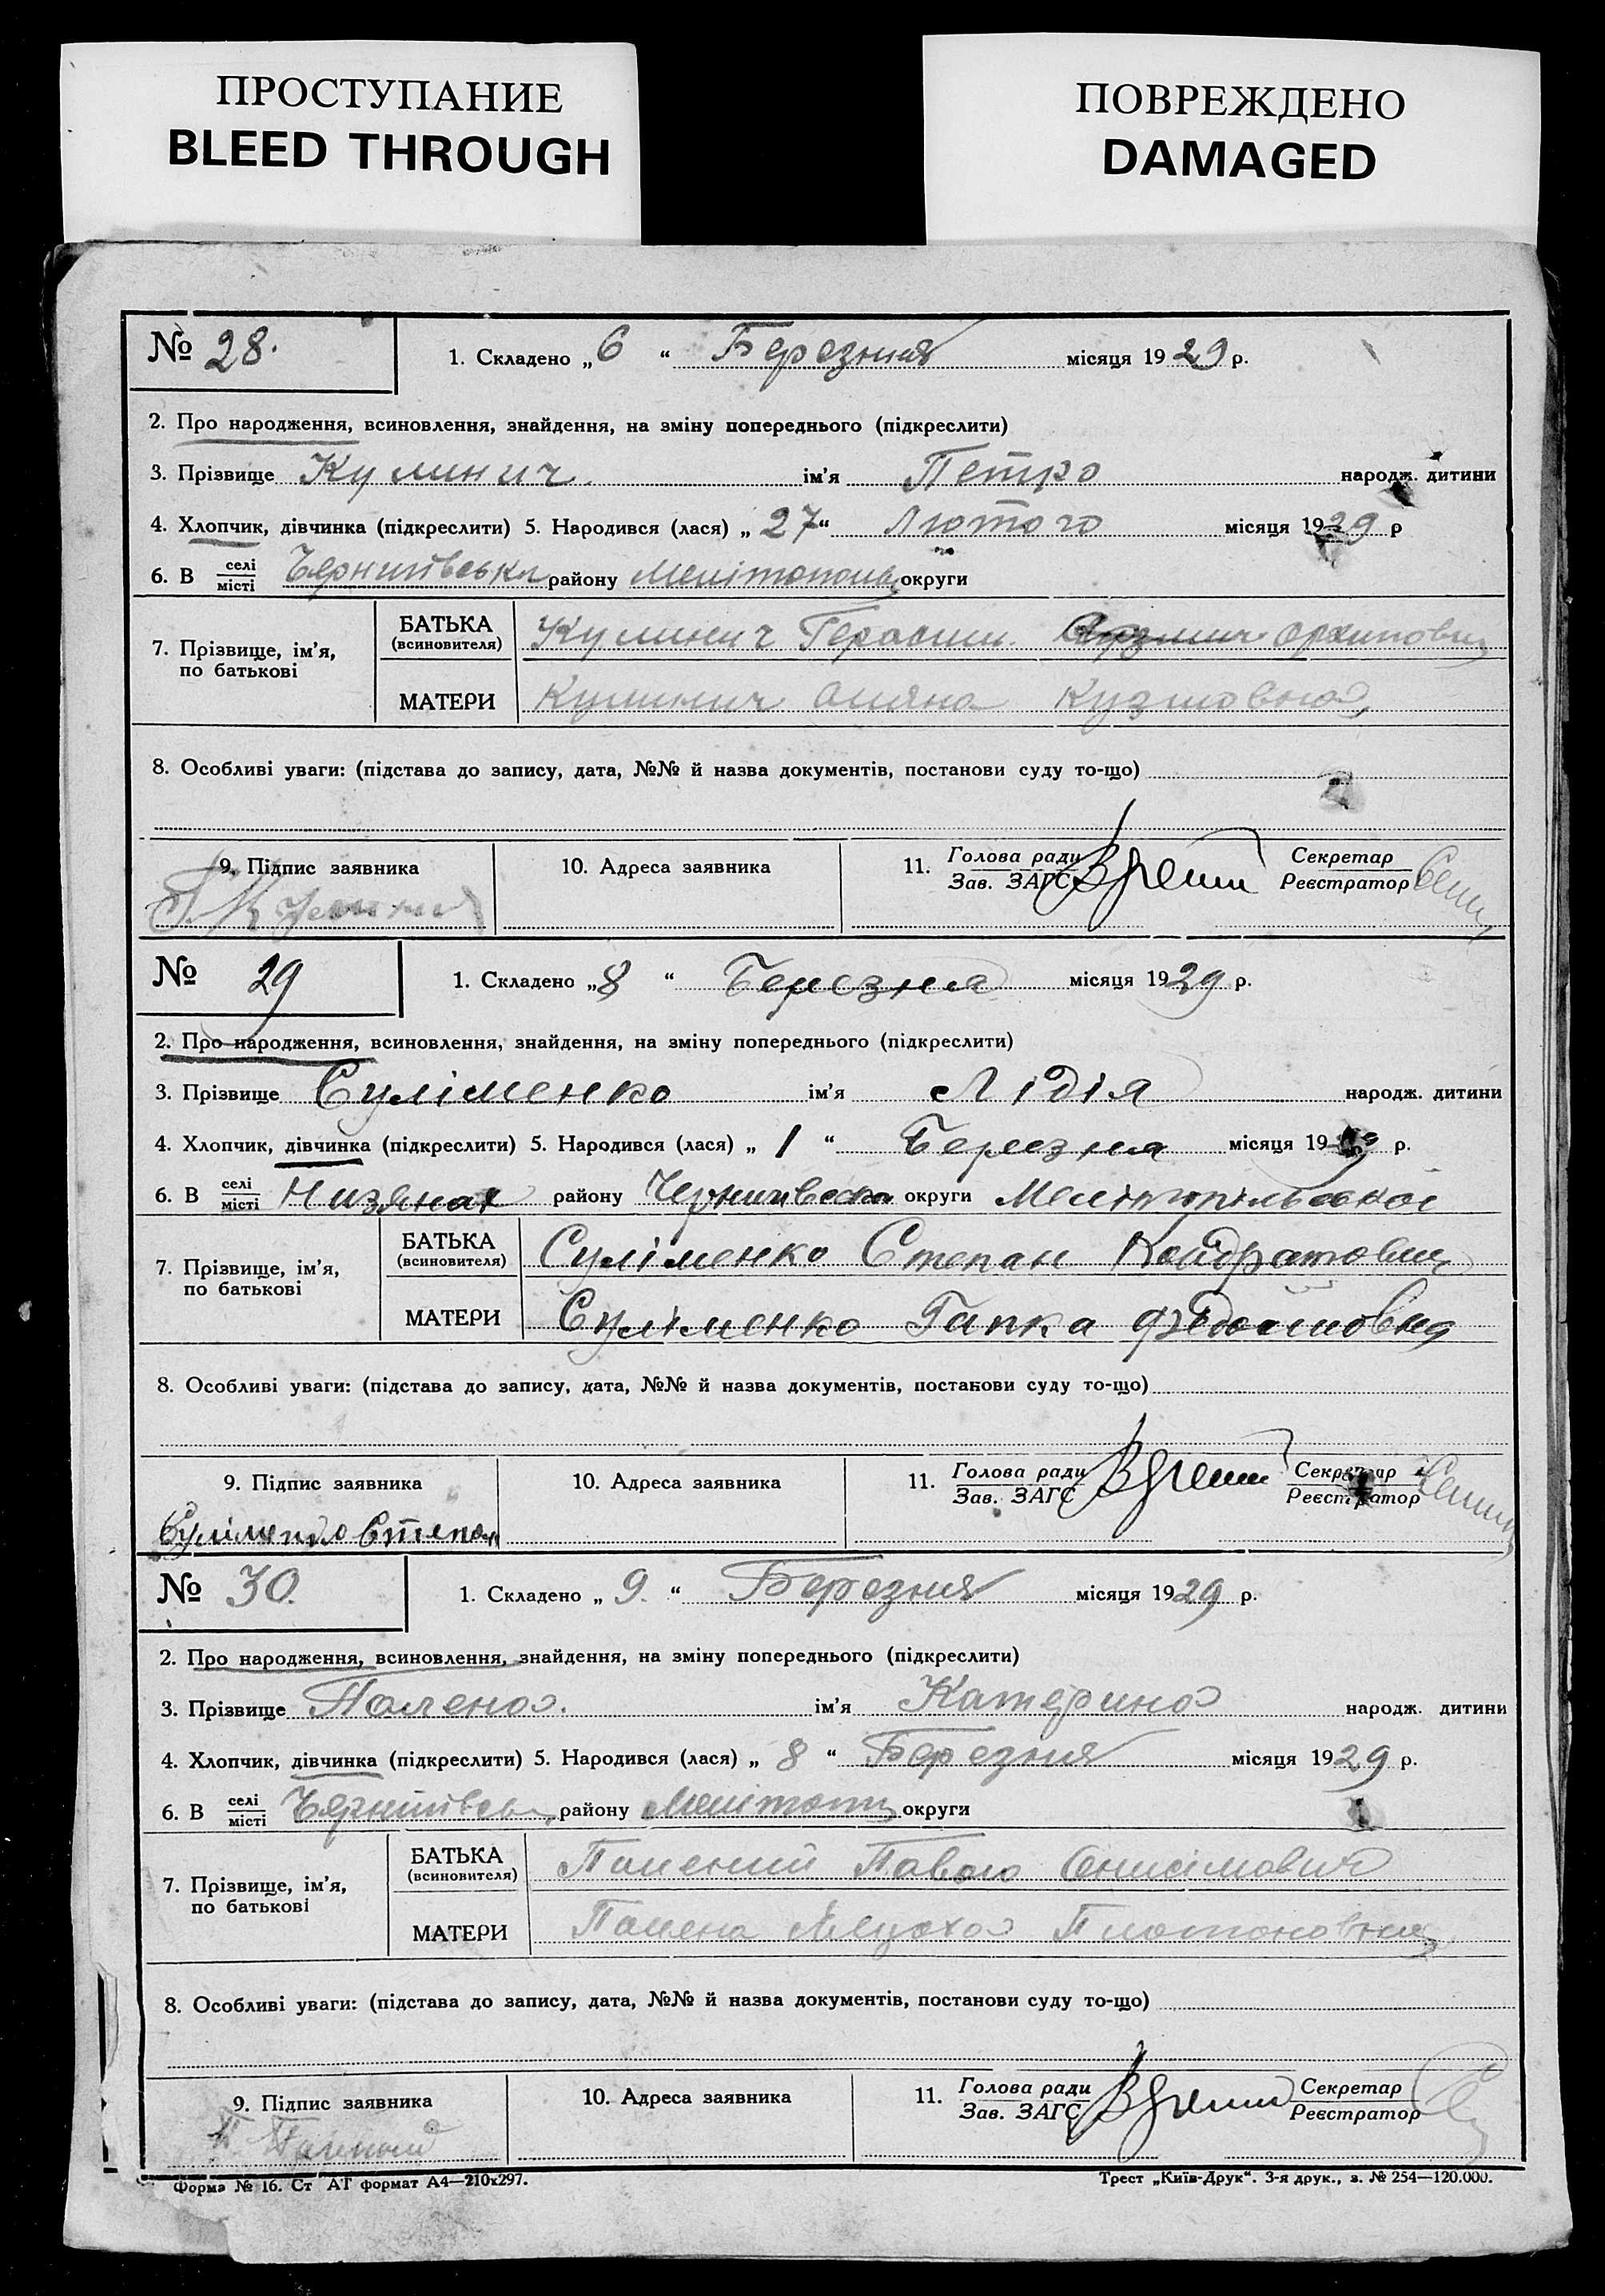 ПРОСТУПАНИЕ
BLEED THROUGH
ПОВРЕЖДЕНО
DAMAGED
№ 28. 1. Складено „6“ Березня місяця 1929 р.
2. Про народження, всиновлення, знайдення, на зміну попереднього (підкреслити)
3. Прізвище Кулинич. ім'я Петро народж. дитини
4. Хлопчик, дівчинка (підкреслити) 5. Народився (лася) „27“ Лютого місяця 1929 р
6. В селі місті району округи
7. Прізвище, ім'я, по батькові
БАТЬКА (всиновителя) Кулинич Герасим Архипович
МАТЕРИ Кулинич Кузмовна
8. Особливі уваги: (підстава до запису, дата, №№ й назва документів, постанови суду то-що)
9. Підпис заявника 10. Адреса заявника 11. Голова ради Зав. ЗАГС Секретар Реєстратор
№ 29 1. Складено „8“ Березня місяця 1929 р.
2. Про народження, всиновлення, знайдення, на зміну попереднього (підкреслити)
3. Прізвище Суліменко ім'я Лідія народж. дитини
4. Хлопчик, дівчинка (підкреслити) 5. Народився (лася) „1“ Березня місяця 1929 р.
6. В селі місті району округи Мелітопільської
7. Прізвище, ім'я, по батькові
БАТЬКА (всиновителя) Суліменко Степан Кондратович
МАТЕРИ Суліменко Гапка
8. Особливі уваги: (підстава до запису, дата, №№ й назва документів, постанови суду то-що)
9. Підпис заявника 10. Адреса заявника 11. Голова ради Зав. ЗАГС Секретар Реєстратор
Суліменко Степан
№ 30. 1. Складено „9.“ Березня місяця 1929 р.
2. Про народження, всиновлення, знайдення, на зміну попереднього (підкреслити)
3. Прізвище Палена. ім'я Катерина народж. дитини
4. Хлопчик, дівчинка (підкреслити) 5. Народився (лася) „8“ Березня місяця 1929 р.
6. В селі місті району округи
7. Прізвище, ім'я, по батькові
БАТЬКА (всиновителя) Палений Павло Онисімович
МАТЕРИ Палена Платоновна
8. Особливі уваги: (підстава до запису, дата, №№ й назва документів, постанови суду то-що)
9. Підпис заявника 10. Адреса заявника 11. Голова ради Зав. ЗАГС Секретар Реєстратор
П Палений
Форма № 16. Ст АТ формат А4—210х297. Трест „Київ-Друк“. 3-я друк., з. № 254—120.000.